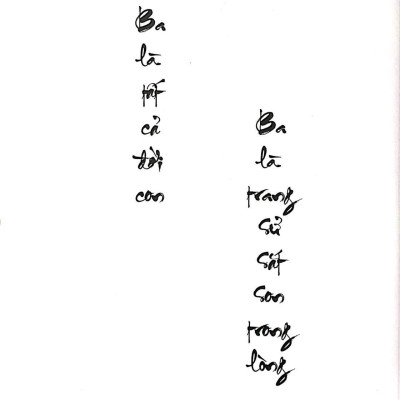 Ba
là
tất
cả
đời
con
Ba
là
trang
sử
sắt
son
trong
lòng